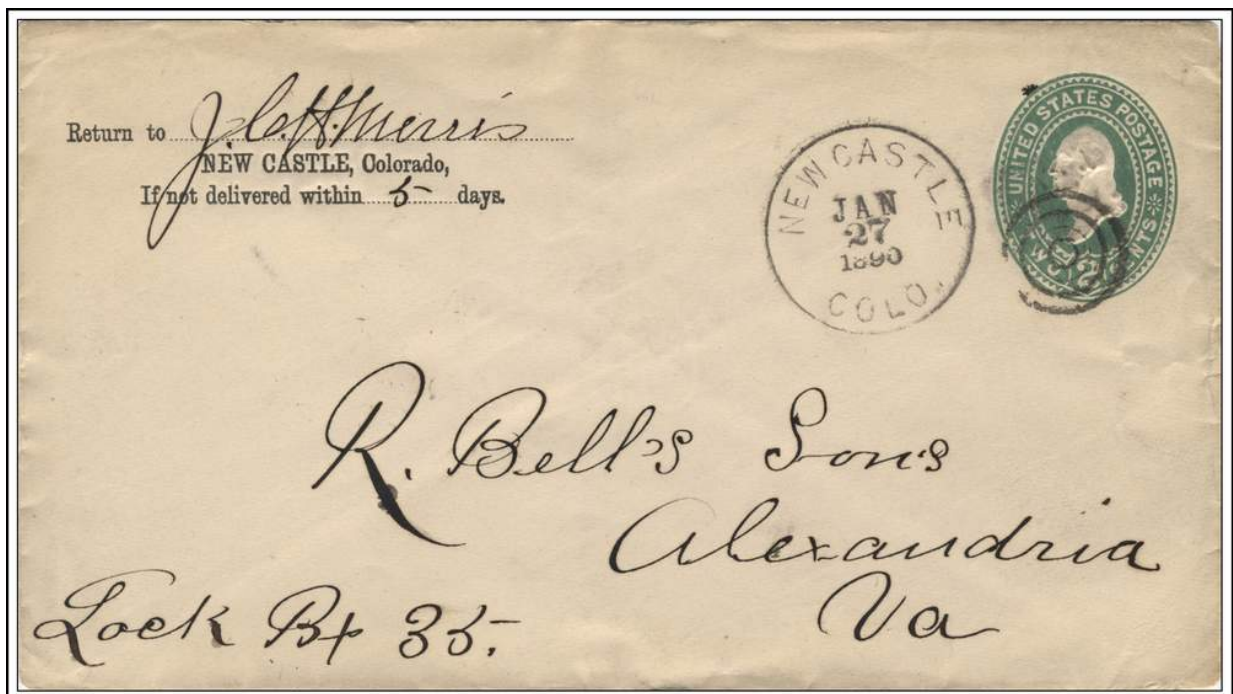 Return to J. C. H. Morris
NEW CASTLE, Colorado,
If not delivered within 5 days.
NEW CASTLE
JAN
27
1890
COLO.
UNITED STATES POSTAGE
TWO 2 CENTS
R. Bell's Sons
Alexandria
Va
Lock Bx 35.